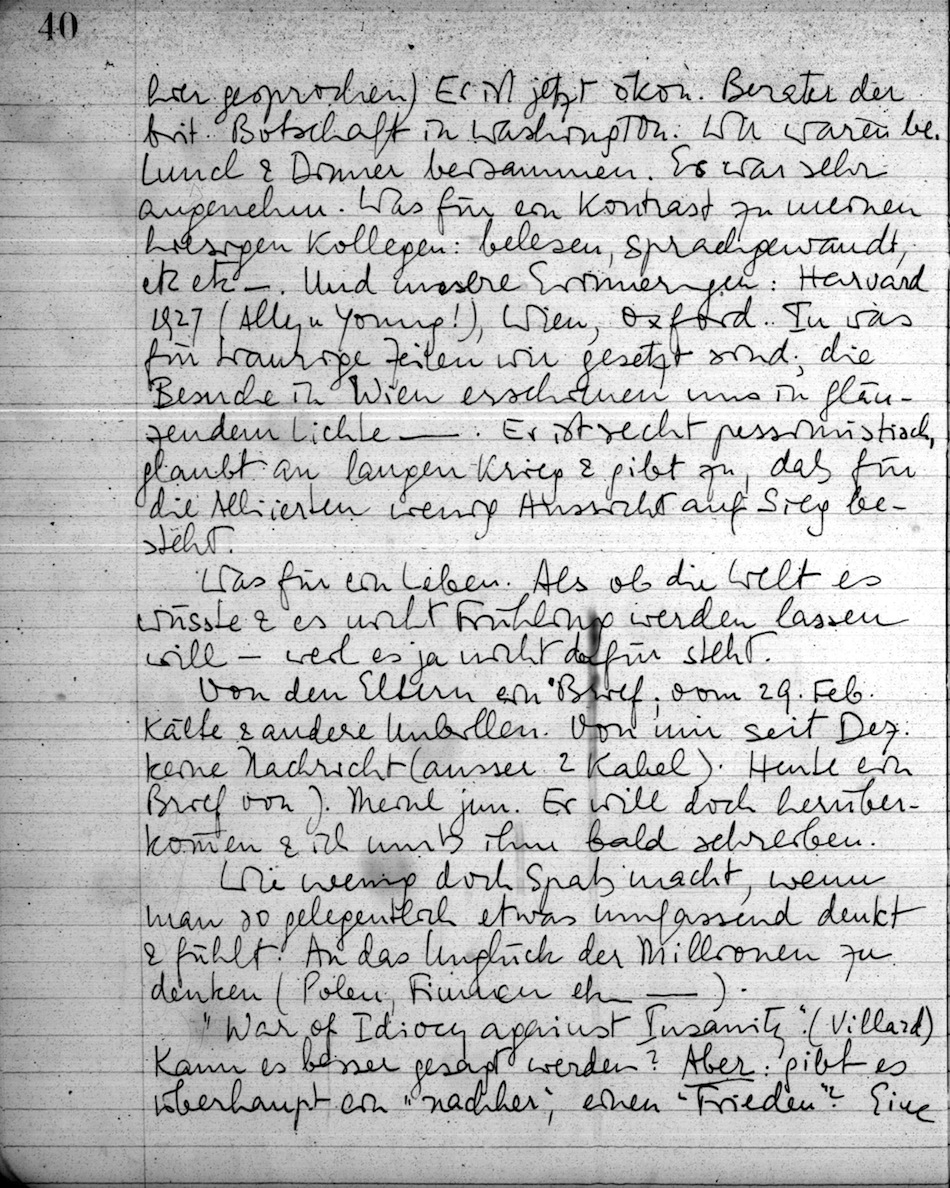 40
hier gesprochen) Er ist jetzt ökon. Berater der
brit. Botschaft in Washington. Wir waren be.
Lunch & Dinner beisammen. Es war sehr
angenehm. Was für ein Kontrast zu meinen
hiesigen Kollegen: belesen, sprachgewandt,
etc etc —. Und unsere Erinnerungen: Harvard
1927 (Allyn Young!), Wien, Oxford.. In was
für traurige Zeiten wir gesetzt sind; die
Besuche in Wien erscheinen uns in glän-
zendem Lichte —. Er ist recht pessimistisch,
glaubt an langen Krieg & gibt zu, daß für
die Alliierten wenig Aussicht auf Sieg be-
steht.
Was für ein Leben. Als ob die Welt es
wüsste & es nicht Frühling werden lassen
will — weil es ja nicht dafür steht.
Von den Eltern ein Brief, vom 29. Feb.
Kälte & andere Unbillen. Von mir seit Dez.
keine Nachricht (ausser 2 Kabel). Heute ein
Brief von J. Meinl jun. Er will doch herüber-
kom̅en & ich muß ihm bald schreiben.
Wie wenig doch Spaß macht, wenn
man so gelegentlich etwas umfassend denkt
& fühlt! An das Unglück der Millionen zu
denken (Polen, Finnen etc —).
"War of Idiocy against Insanity". (Villard)
Kann es besser gesagt werden? Aber: gibt es
überhaupt ein "nachher", einen "Frieden"? Eine